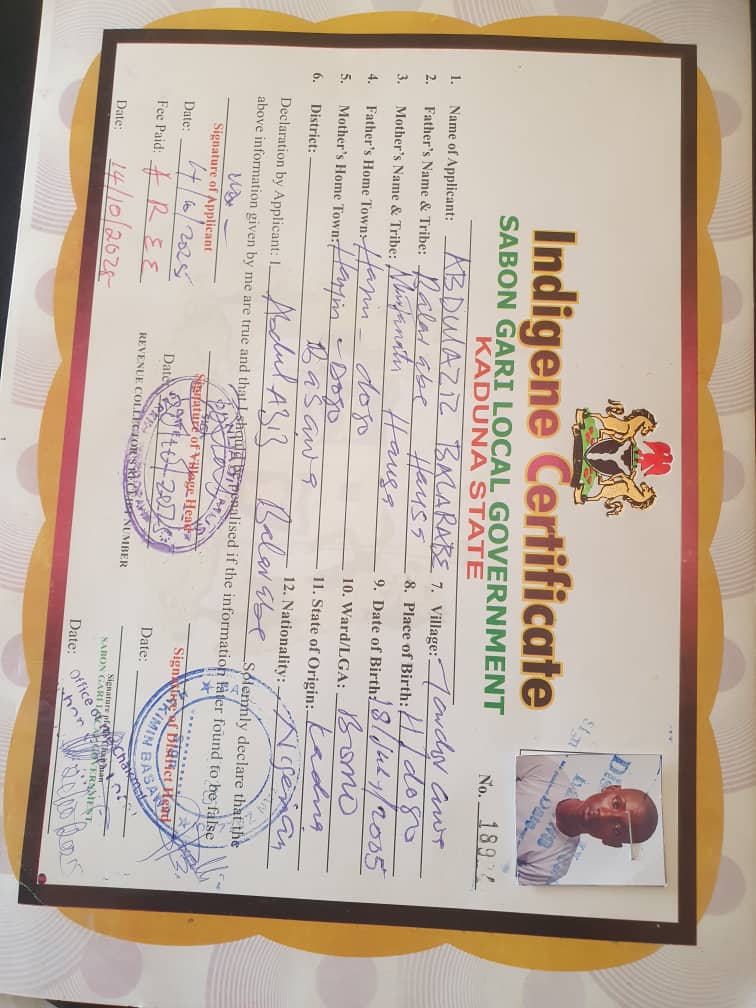 Indigene Certificate
SABON GARI LOCAL GOVERNMENT
KADUNA STATE
No. 189
1. Name of Applicant: ABDULAZIZ BALARABE
2. Father's Name & Tribe: Balarabe Hausa
3. Mother's Name & Tribe: Hausa
4. Father's Home Town: Hayin - dogo
5. Mother's Home Town: Hayin - Dogo
6. District: Basawa
7. Village:
8. Place of Birth: H/dogo
9. Date of Birth: 18/July/2005
10. Ward/LGA: Bomo
11. State of Origin: Kaduna
12. Nationality: Nigerian
Declaration by Applicant: I Abdul Aziz Balarabe Solemnly declare that the
above information given by me are true and that I should be penalised if the information later found to be false
Signature of Applicant
Date: 2025
Signature of Village Head
Date: 2025
Signature of District Head
Date:
KIMIN BASAWA
Fee Paid: FREE
Date: 14/10/2025
REVENUE COLLECTOR'S RECEIPT NUMBER
Signature of the Chairman
SABON GARI LOCAL GOVERNMENT
Office of the Chairman
Date: